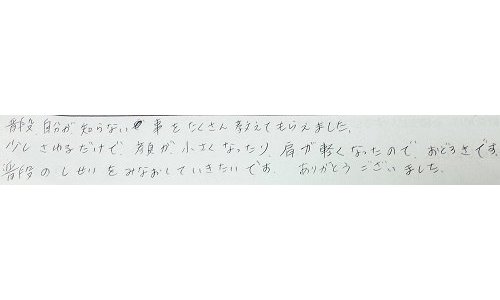 普段 自分が 知らない 事をたくさん 教えてもらえました。
少し さわるだけで、顔が 小さくなったり、肩が 軽くなったので、おどろきです。
普段のしせいをみなおしていきたいです。 ありがとうございました。